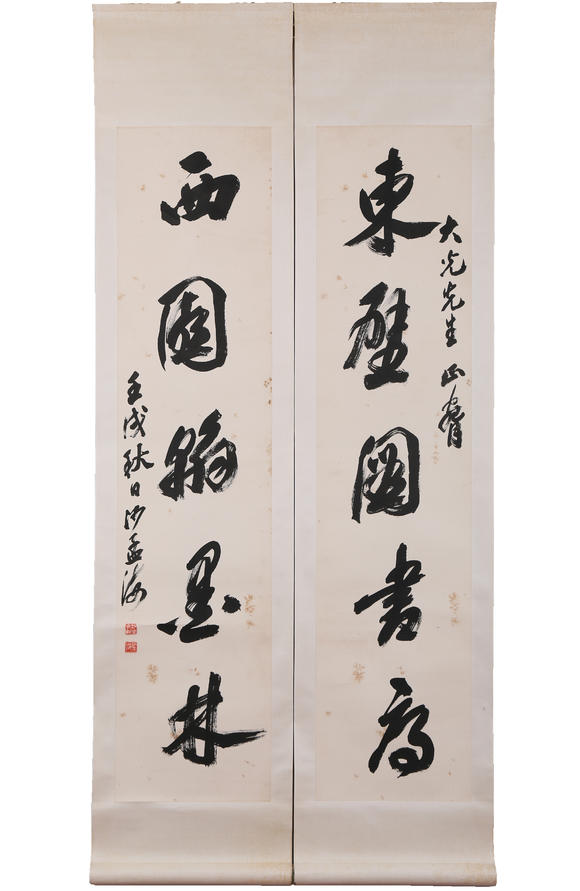 東壁圖書府
大光先生正
西園翰墨林
壬戌秋日沙孟海